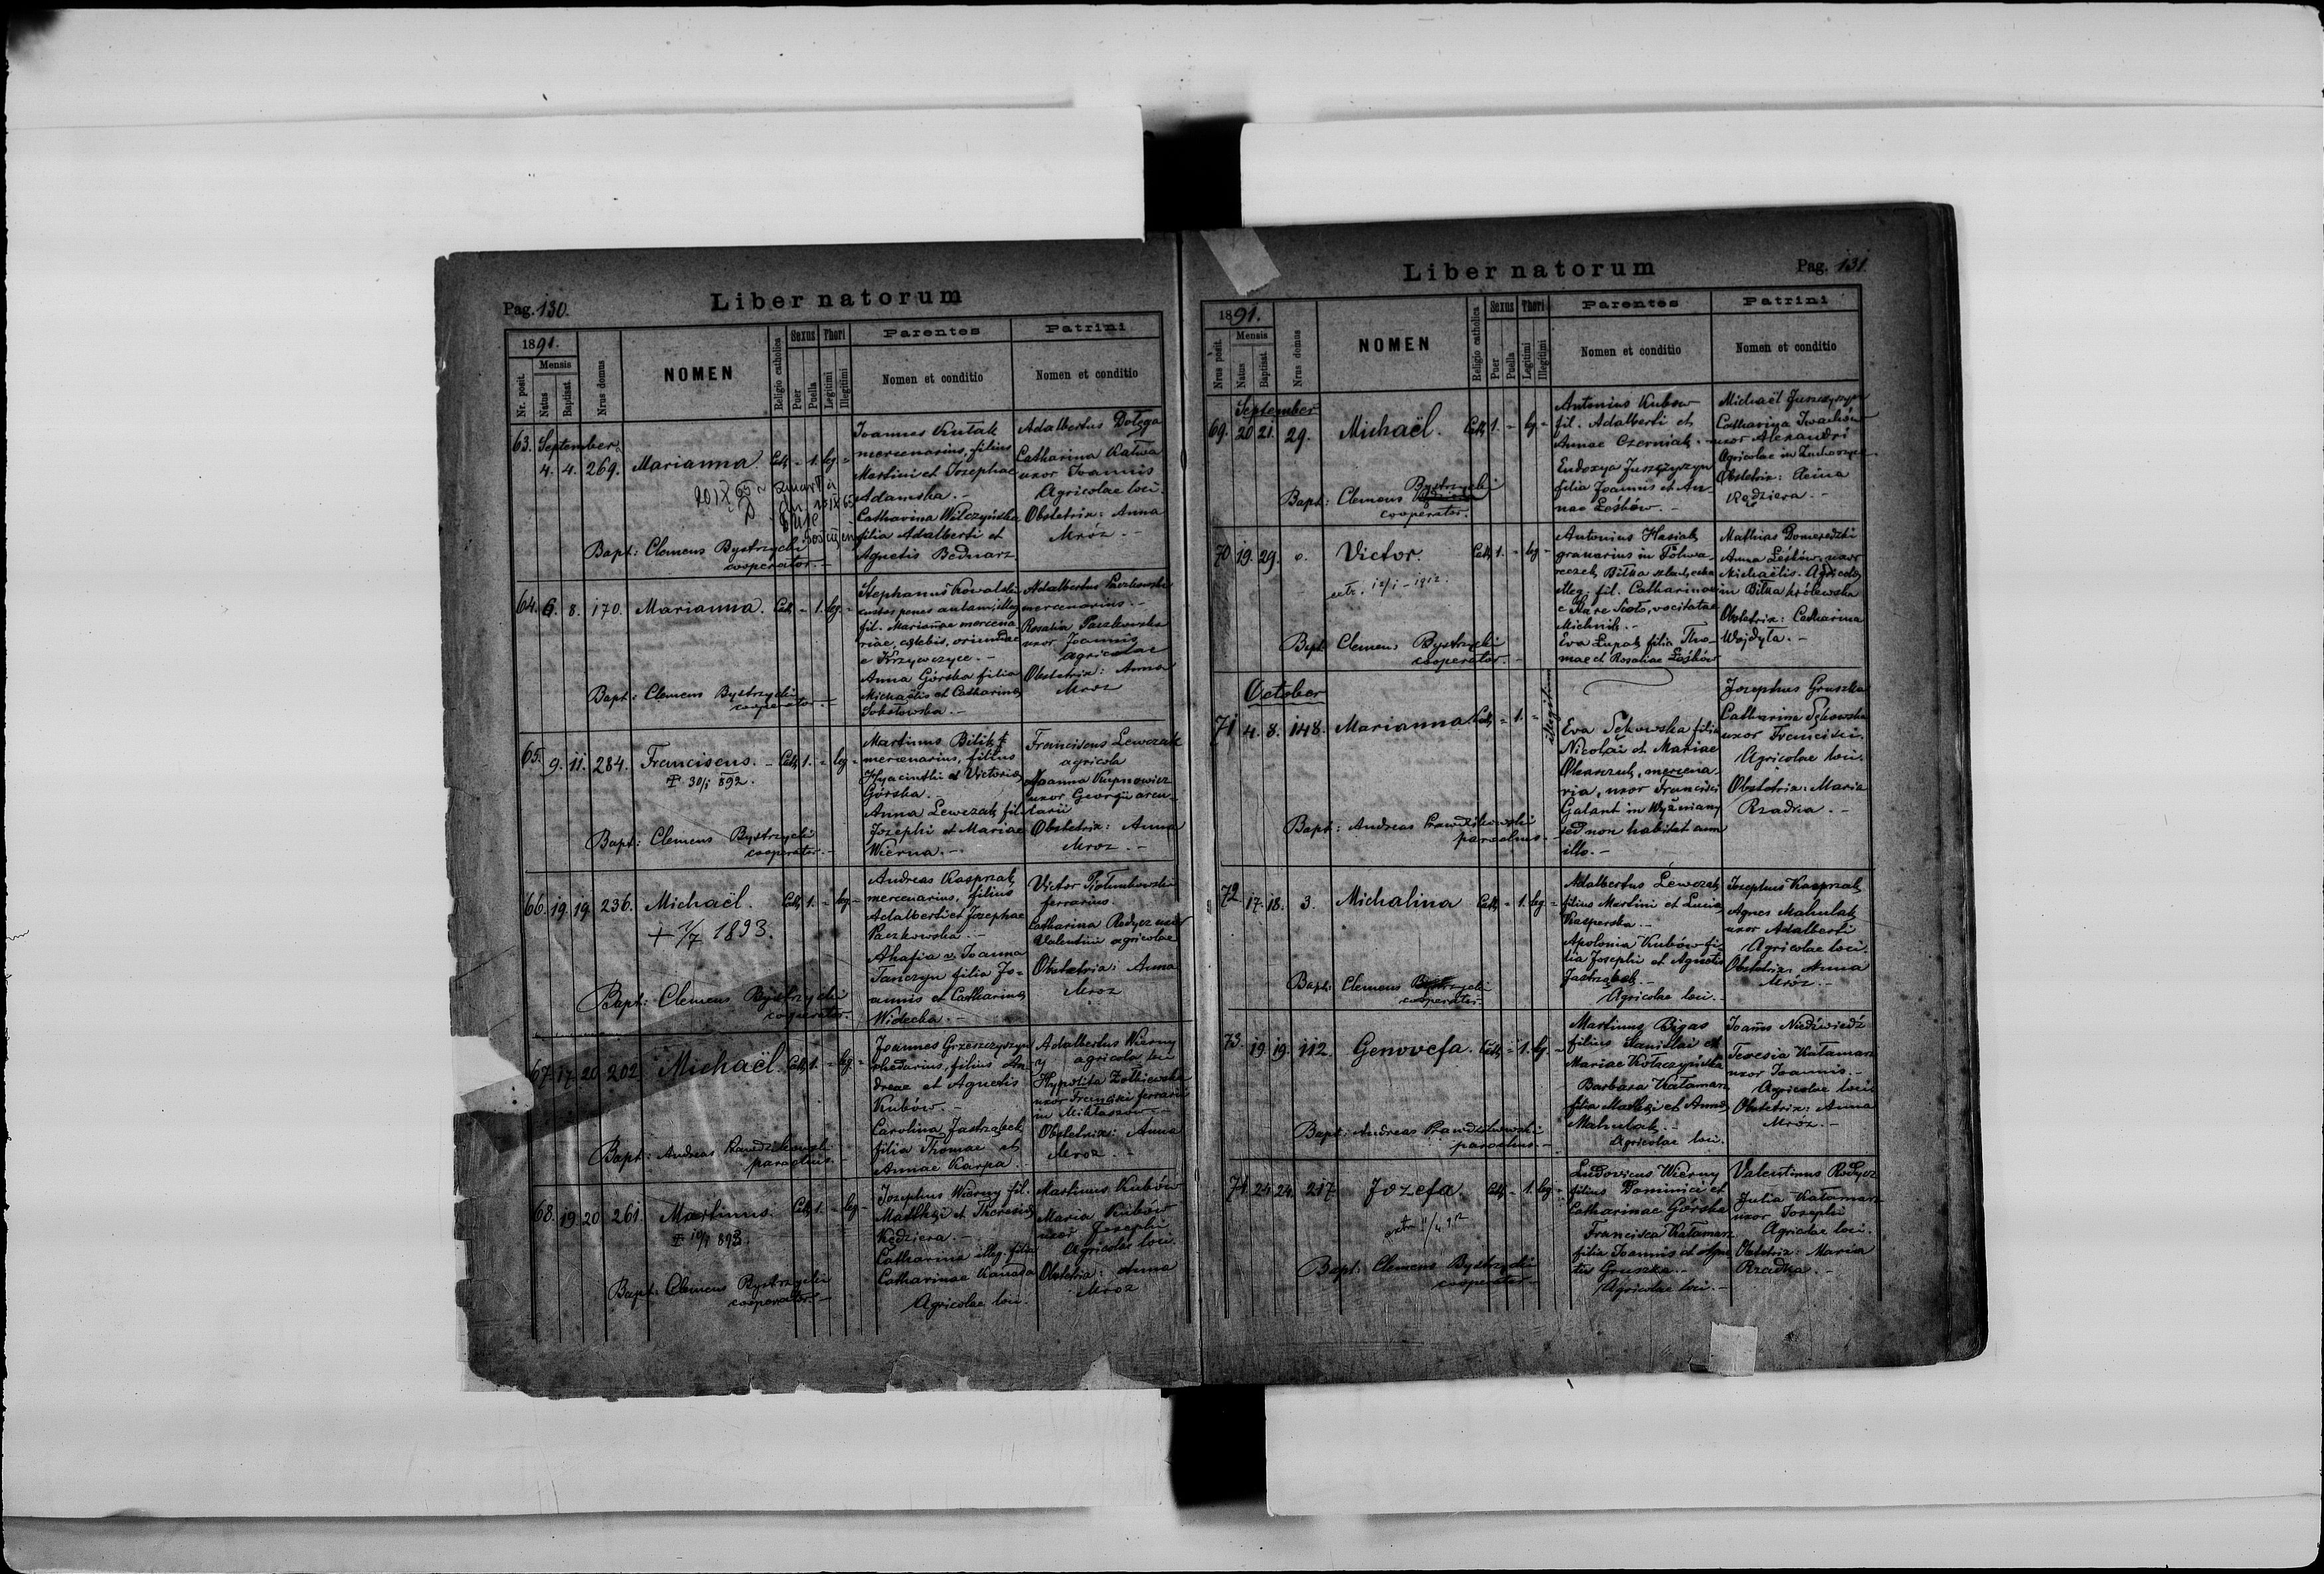 Pag. 130.
Liber natorum
1891.
Nr. posit.
Mensis
Natus
Baptisat.
Nrus domus
NOMEN
Religio catholica
Sexus
Puer
Puella
Thori
Legitimi
Illegitimi
Parentes
Nomen et conditio
Patrini
Nomen et conditio
63. September
4. 4. 269. Marianna. Cath. - 1. leg. -
Joannes Kutak
mercenarius, filius
Martini et Josephae
Adamska. -
Catharina Wilczyńska
filia Adalberti et
Agnetis Bednarz
Adalbertus Dołęga
Catharina Katwa
uxor Joannis
Agricolae loci.
Obstetrix: Anna
Mróz. -
Bapt: Clemens Bystrzycki
cooperator. -
64. 6. 8. 170. Marianna. Cath. - 1. leg. -
Stephanus Kowalski
custos penes aulam, illeg.
fil. Mariannae mercena-
riae, caelebis, oriundae
e Krzywczyce. -
Anna Górska filia
Michaëlis et Catharinae
Sokołowska. -
Adalbertus Paczkowski
mercenarius. -
Rosalia Paczkowska
uxor Joannis
agricolae
Obstetrix: Anna
Mroz
Bapt: Clemens Bystrzycki
cooperator. -
65. 9. 11. 284. Franciscus. - Cath. 1. - leg. -
30/1 892.
Martinus Bilik
mercenarius, filius
Hyacinthi et Victoriae
Górska. -
Anna Lewczak fil.
Josephi et Mariae
Wierna. -
Franciscus Lewczak
agricola
Joanna Kupnowicz
uxor Georgii
Obstetrix: Anna
Mroz. -
Bapt: Clemens Bystrzycki
cooperator. -
66. 19. 19. 236. Michaël. Cath. 1. - leg. -
+ 7/7 1893.
Andreas Kasprzak
mercenarius, filius
Adalberti et Josephae
Paczkowska. -
Ahafia v. Joanna
Tanczyn filia Jo-
annis et Catharinae
Widecka. -
Victor Piotunkowski
ferrarius
Catharina Rodycz uxor
Valentini agricolae
Obstetrix: Anna
Mroz
Bapt: Clemens Bystrzycki
cooperator. -
67. 17. 20. 202. Michaël. Cath. 1. - leg. -
Joannes Grzeszczyszyn
rhedarius, filius An-
dreae et Agnetis
Kubów. -
Carolina Jastrząbek
filia Thomae et
Annae Karpa. -
Adalbertus Wierny
agricola loci
Hypolita Żółkiewska
uxor Francisci ferrarii
in Mikłaszów. -
Obstetrix: Anna
Mroz. -
Bapt: Andreas Prawdzikowski
parochus. -
68. 19. 20. 261. Martinus. Cath. 1. - leg. -
Josephus Wierny fil.
Matthaei et Theresiae
Kędziera. -
Catharina illeg. filia
Catharinae Kanada
Agricolae loci. -
Martinus Kubów
Maria Kubów
uxor Josephi
Agricolae loci.
Obstetrix: Anna
Mroz
Bapt: Clemens Bystrzycki
cooperator. -
Liber natorum
Pag. 131.
1891.
Nrus posit.
Mensis
Natus
Baptisat.
Nrus domus
NOMEN
Religio catholica
Sexus
Puer
Puella
Thori
Legitimi
Illegitimi
Parentes
Nomen et conditio
Patrini
Nomen et conditio
September
69. 20 21. 29. Michaël. Cath. 1. - lg. -
Antonius Kubow
fil. Adalberti et
Annae Czerniak. -
Eudoxya Juszczyszyn
filia Joannis et An-
nae Leśków. -
Michaël Juszczyszyn
Catharina Iwachów
uxor Alexandri
Agricolae in
Obstetrix: Anna
Kędziera. -
Bapt: Clemens Bystrzycki
cooperator.
70. 19. 29. 0. Victor. Cath. 1. - leg. -
Antonius Hasiak
granarius in Folwa-
reczek Biłka szlachecka
illeg. fil. Catharinae
e Stare Sioło, vocitatae
Michnik. -
Eva Łupak filia Tho-
mae et Rosaliae Leśków
Mathias Domeredzki
Anna Leśków, uxor
Michaëlis. Agricolae
in Biłka królewska
Obstetrix: Catharina
Wojdyła. -
Bapt: Clemens Bystrzycki
cooperator. -
October
71. 4. 8. 148. Marianna. Cath. - 1. - illegitima
Eva Sękowska filia
Nicolai et Mariae
mercena-
ria, uxor Francisci
Galant in Wyżniany
sed non habitat cum
illo. -
Josephus Gruszka
Catharina Sękowska
uxor Francisci.
Agricolae loci.
Obstetrix: Maria
Rzadka. -
Bapt: Andreas Prawdzikowski
parochus. -
72. 17. 18. 3. Michalina Cath. - 1. leg. -
Adalbertus Lewczak
filius Martini et Luciae
Kasperska. -
Apolonia Kubów fi-
lia Josephi et Agnetis
Jastrząbek. -
Agricolae loci. -
Josephus Kasprzak
Agnes Mahulak
uxor Adalberti
Agricolae loci.
Obstetrix: Anna
Mróz. -
Bapt: Clemens Bystrzycki
cooperator. -
73. 19. 19. 112. Genovefa. Cath. - 1. leg. -
Martinus Bigas
filius Stanislai et
Mariae Kołaczyńska
Barbara Katamarz
filia Matthaei et Annae
Mahulak. -
Agricolae loci.
Joannes Niedźwiedź
Teresia Katamarz
uxor Joannis. -
Agricolae loci.
Obstetrix: Anna
Mróz. -
Bapt: Andreas Prawdzikowski
parochus. -
74. 24. 24. 217. Jozefa. Cath. - 1. leg. -
Ludovicus Wierny
filius Dominici et
Catharinae Górska
Francisca Katamarz
filia Joannis et Agne-
tis Gruszka. -
Agricolae loci. -
Valentinus Rodycz
Julia Katamarz
uxor Josephi
Agricolae loci.
Obstetrix: Maria
Rzadka. -
Bapt: Clemens Bystrzycki
cooperator. -